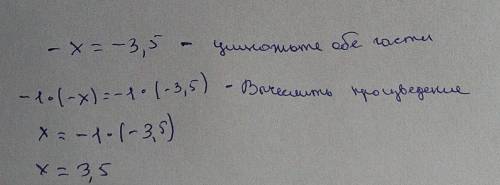 - x = -3,5 - умножьте обе части
-1•(-x)=-1•(-3,5) - Вычислить произведение
x = -1•(-3,5)
x = 3,5